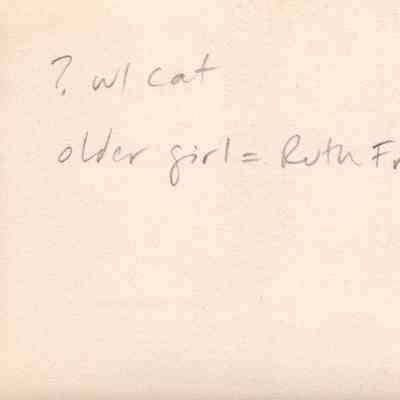 ? w/ cat
older girl = Ruth Fr